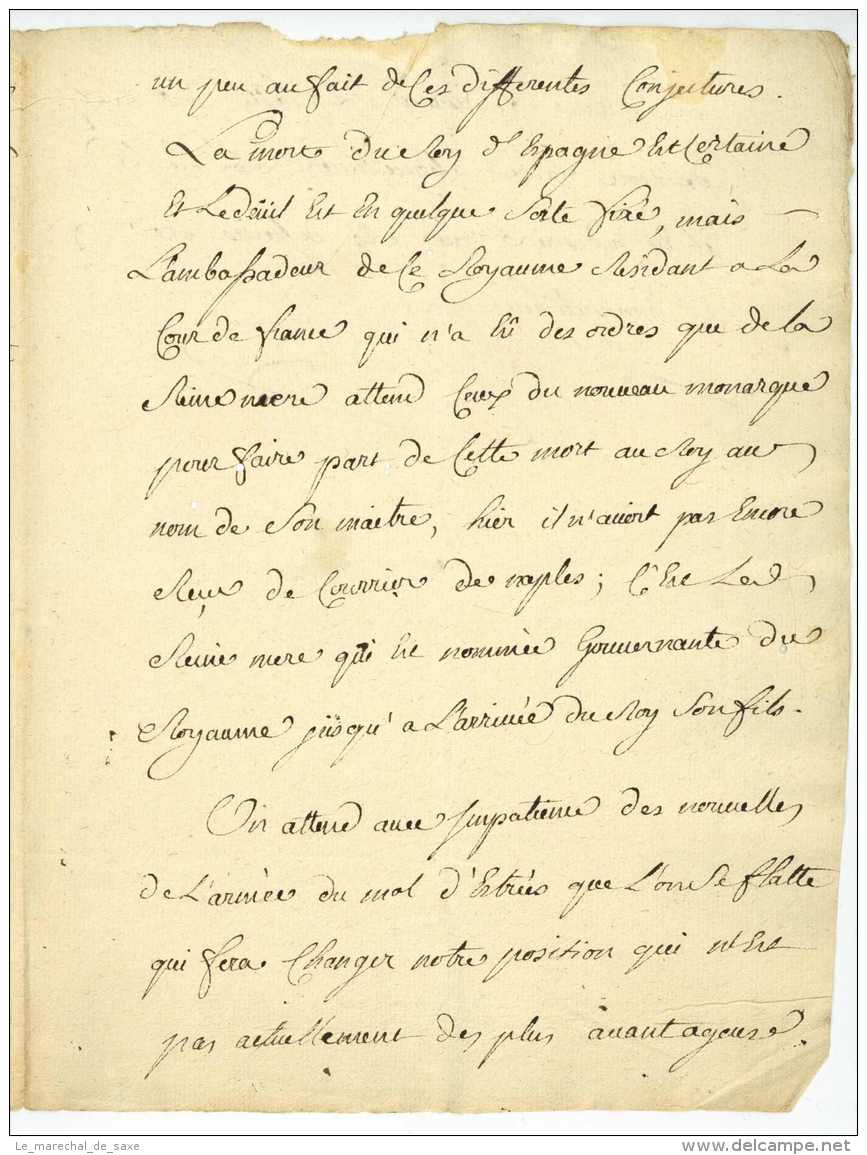 un peu au fait de ces differentes Conjectures.
La mort du Roy d'Espagne est Certaine
Et Le deüil Est En quelque Sorte fixé, mais
L'ambassadeur de Ce Royaume Residant a La
Cour de france qui n'a Eû des ordres que de la
Reine mere attend Ceux du nouveau monarque
pour faire part de Cette mort au Roy au
nom de Son maitre, hier il n'avoit pas Encore
Reçu de Courrier de naples; C'Est La
Reine mere qui Est nommée Gouvernante du
Royaume jusqu'a L'arrivée du Roy Son fils.
On attend avec Impatience des nouvelles
de L'armée du mal d'Estrées que L'on Se flatte
qui fera Changer notre position qui n'Est
pas actuellement des plus avantageuse.
Le_marechal_de_saxe
www.delcampe.net